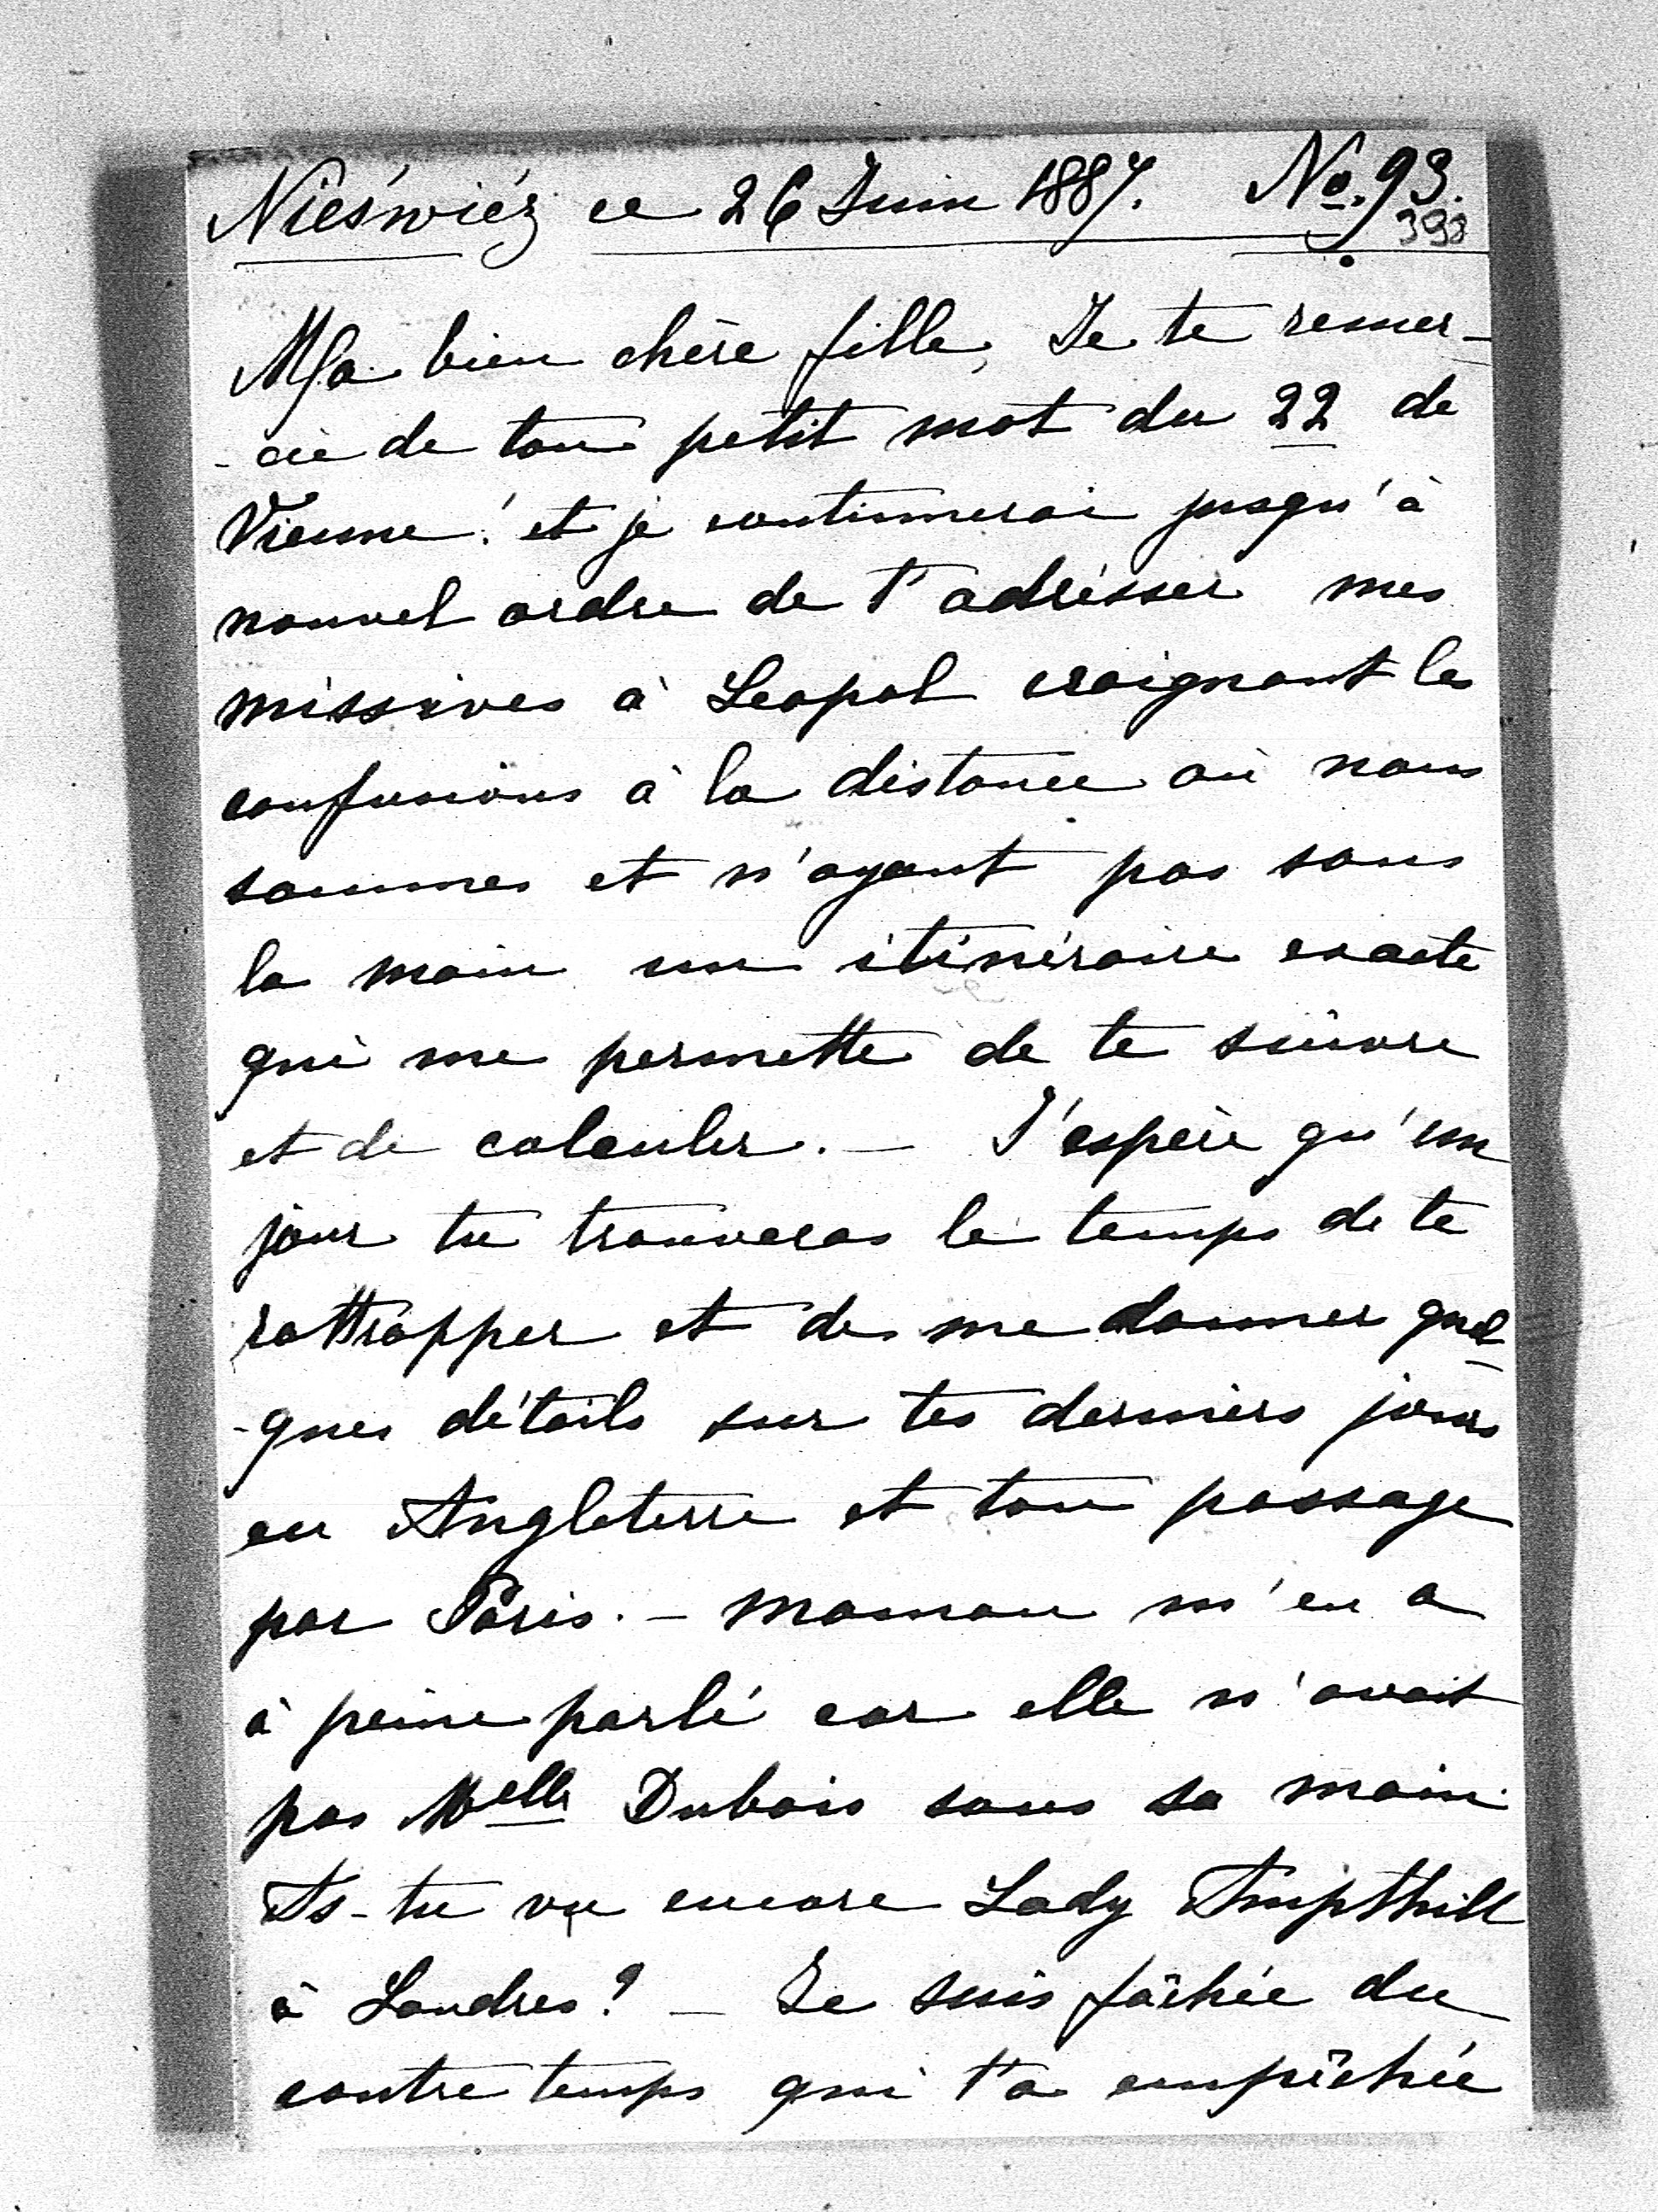 Nieświéz ce 26 Juin 1887. No. 93.
398
Ma bien chère fille, Je te remer-
-cie de ton petit mot du 22 de
Vienne! et je continuerai jusqu'à
nouvel ordre de t'adrésser mes
missives à Leopol craignant les
confusions à la distance où nous
sommes et n'ayant pas sous
la main un itinéraire exacte
qui me permette de te suivre
et de calculer. — J'espère qu'un
jour tu trouveras le temps de te
rattrapper et de me donner quel-
-ques détails sur tes derniers jours
en Angleterre et ton passage
par Paris. — Maman m'en a
à peine parlé car elle n'avait
pas Melle Dubois sous sa main.
As-tu vu encore Lady Ampthill
à Londres? — Je suis fâchée du
contre temps qui t'a empêchée